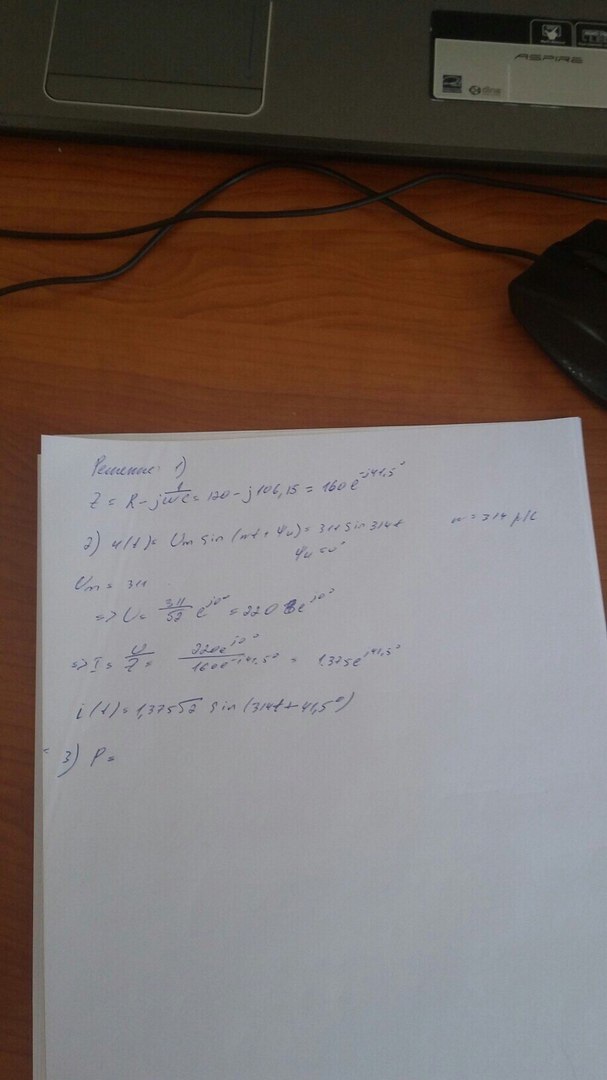 ASPIRE
Решение: 1)
Z = R - j 1/ωC = 120 - j106,15 = 160e^-j41,5°
2) u(t) = Um sin (ωt + ψu) = 311 sin 314t
ω = 314 р/с
ψu = 0°
Um = 311
=> U = 311/√2 e^j0° = 220 e^j0°
=> I = U/Z = 220e^j0° / 160e^-j41,5° = 1,375e^j41,5°
i(t) = 1,375√2 sin (314t + 41,5°)
3) P =